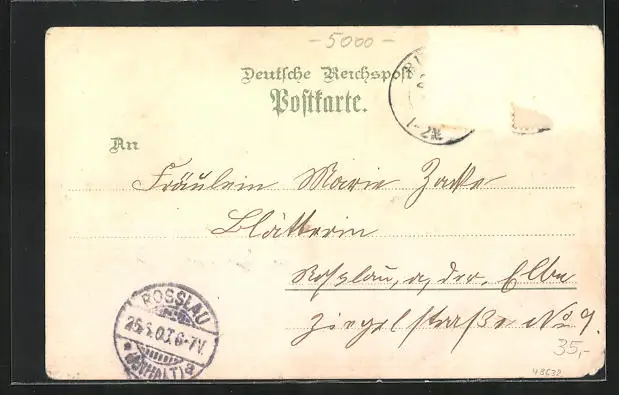 - 5000 -
Deutsche Reichspost
Postkarte.
1-2N
An
Fräulein Marie Zacke
Blätterin
Rosslau, a, der, Elbe
Ziegelstraße No 9.
ROSSLAU
25.3.03.6-7V.
* (ANHALT) a
35,-
48632